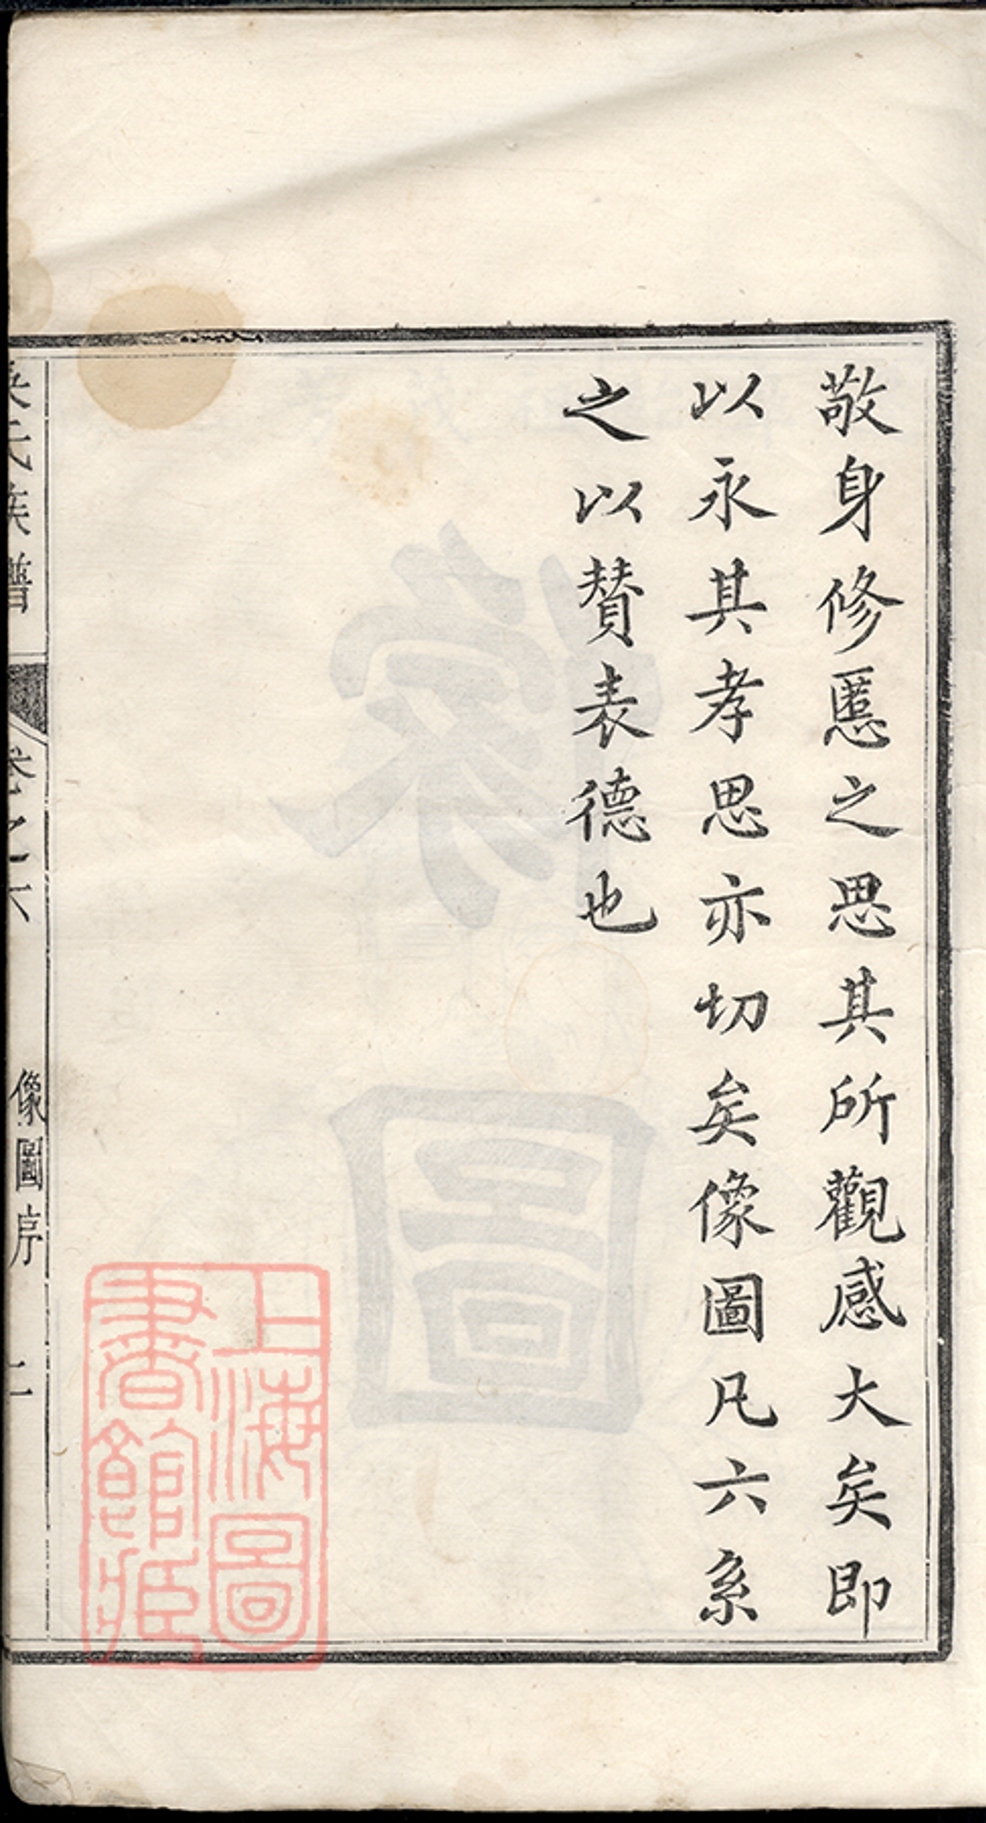 敬身修慝之思其所觀感大矣即
以永其孝思亦切矣像圖凡六系
之以贊表德也
氏族譜
卷之六
像圖序
二
上海圖
書館藏
像
圖